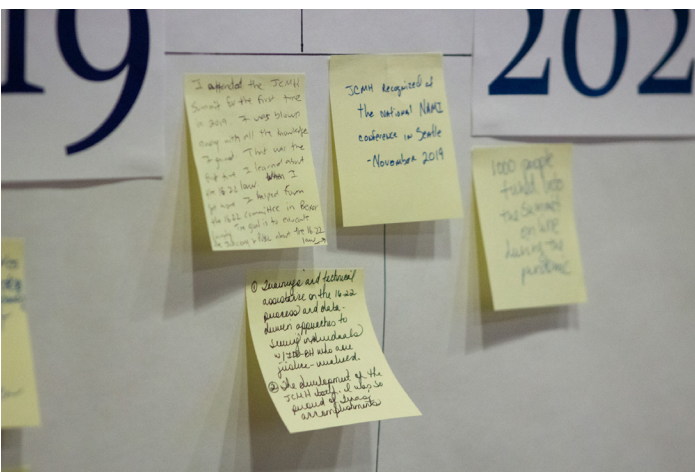 19
202
I attended the JCMH
Summit for the first time
in 2019. I was blown
away with all the knowledge
I gained. That was the
first time I learned about
the 16.22 law. When I
got home I helped form
the 16.22 committee in Bexar
County. The goal is to educate
the about the 16.22
law →
JCMH Recognized at
the national NAMI
conference in Seattle
- November 2019
1000 people
tuned into
the Summit
online
during the
pandemic
① Trainings and technical
assistance on the 16.22
process and data-
driven approaches to
serving individuals
w/ IDD-BH who are
justice-involved.
② The development of the
JCMH . I was so
proud of
accomplishments